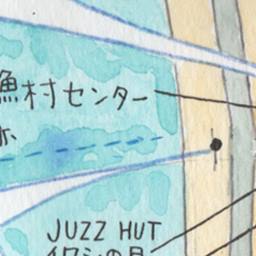 漁村センター
JUZZ HUT
イワシの月